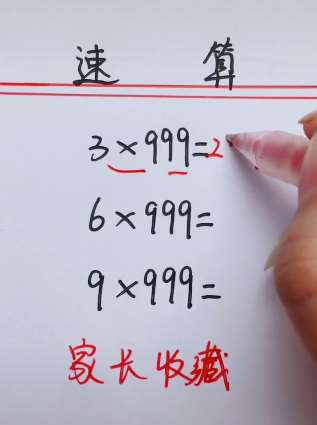 速 算
3×999=2
6×999=
9×999=
家长收藏